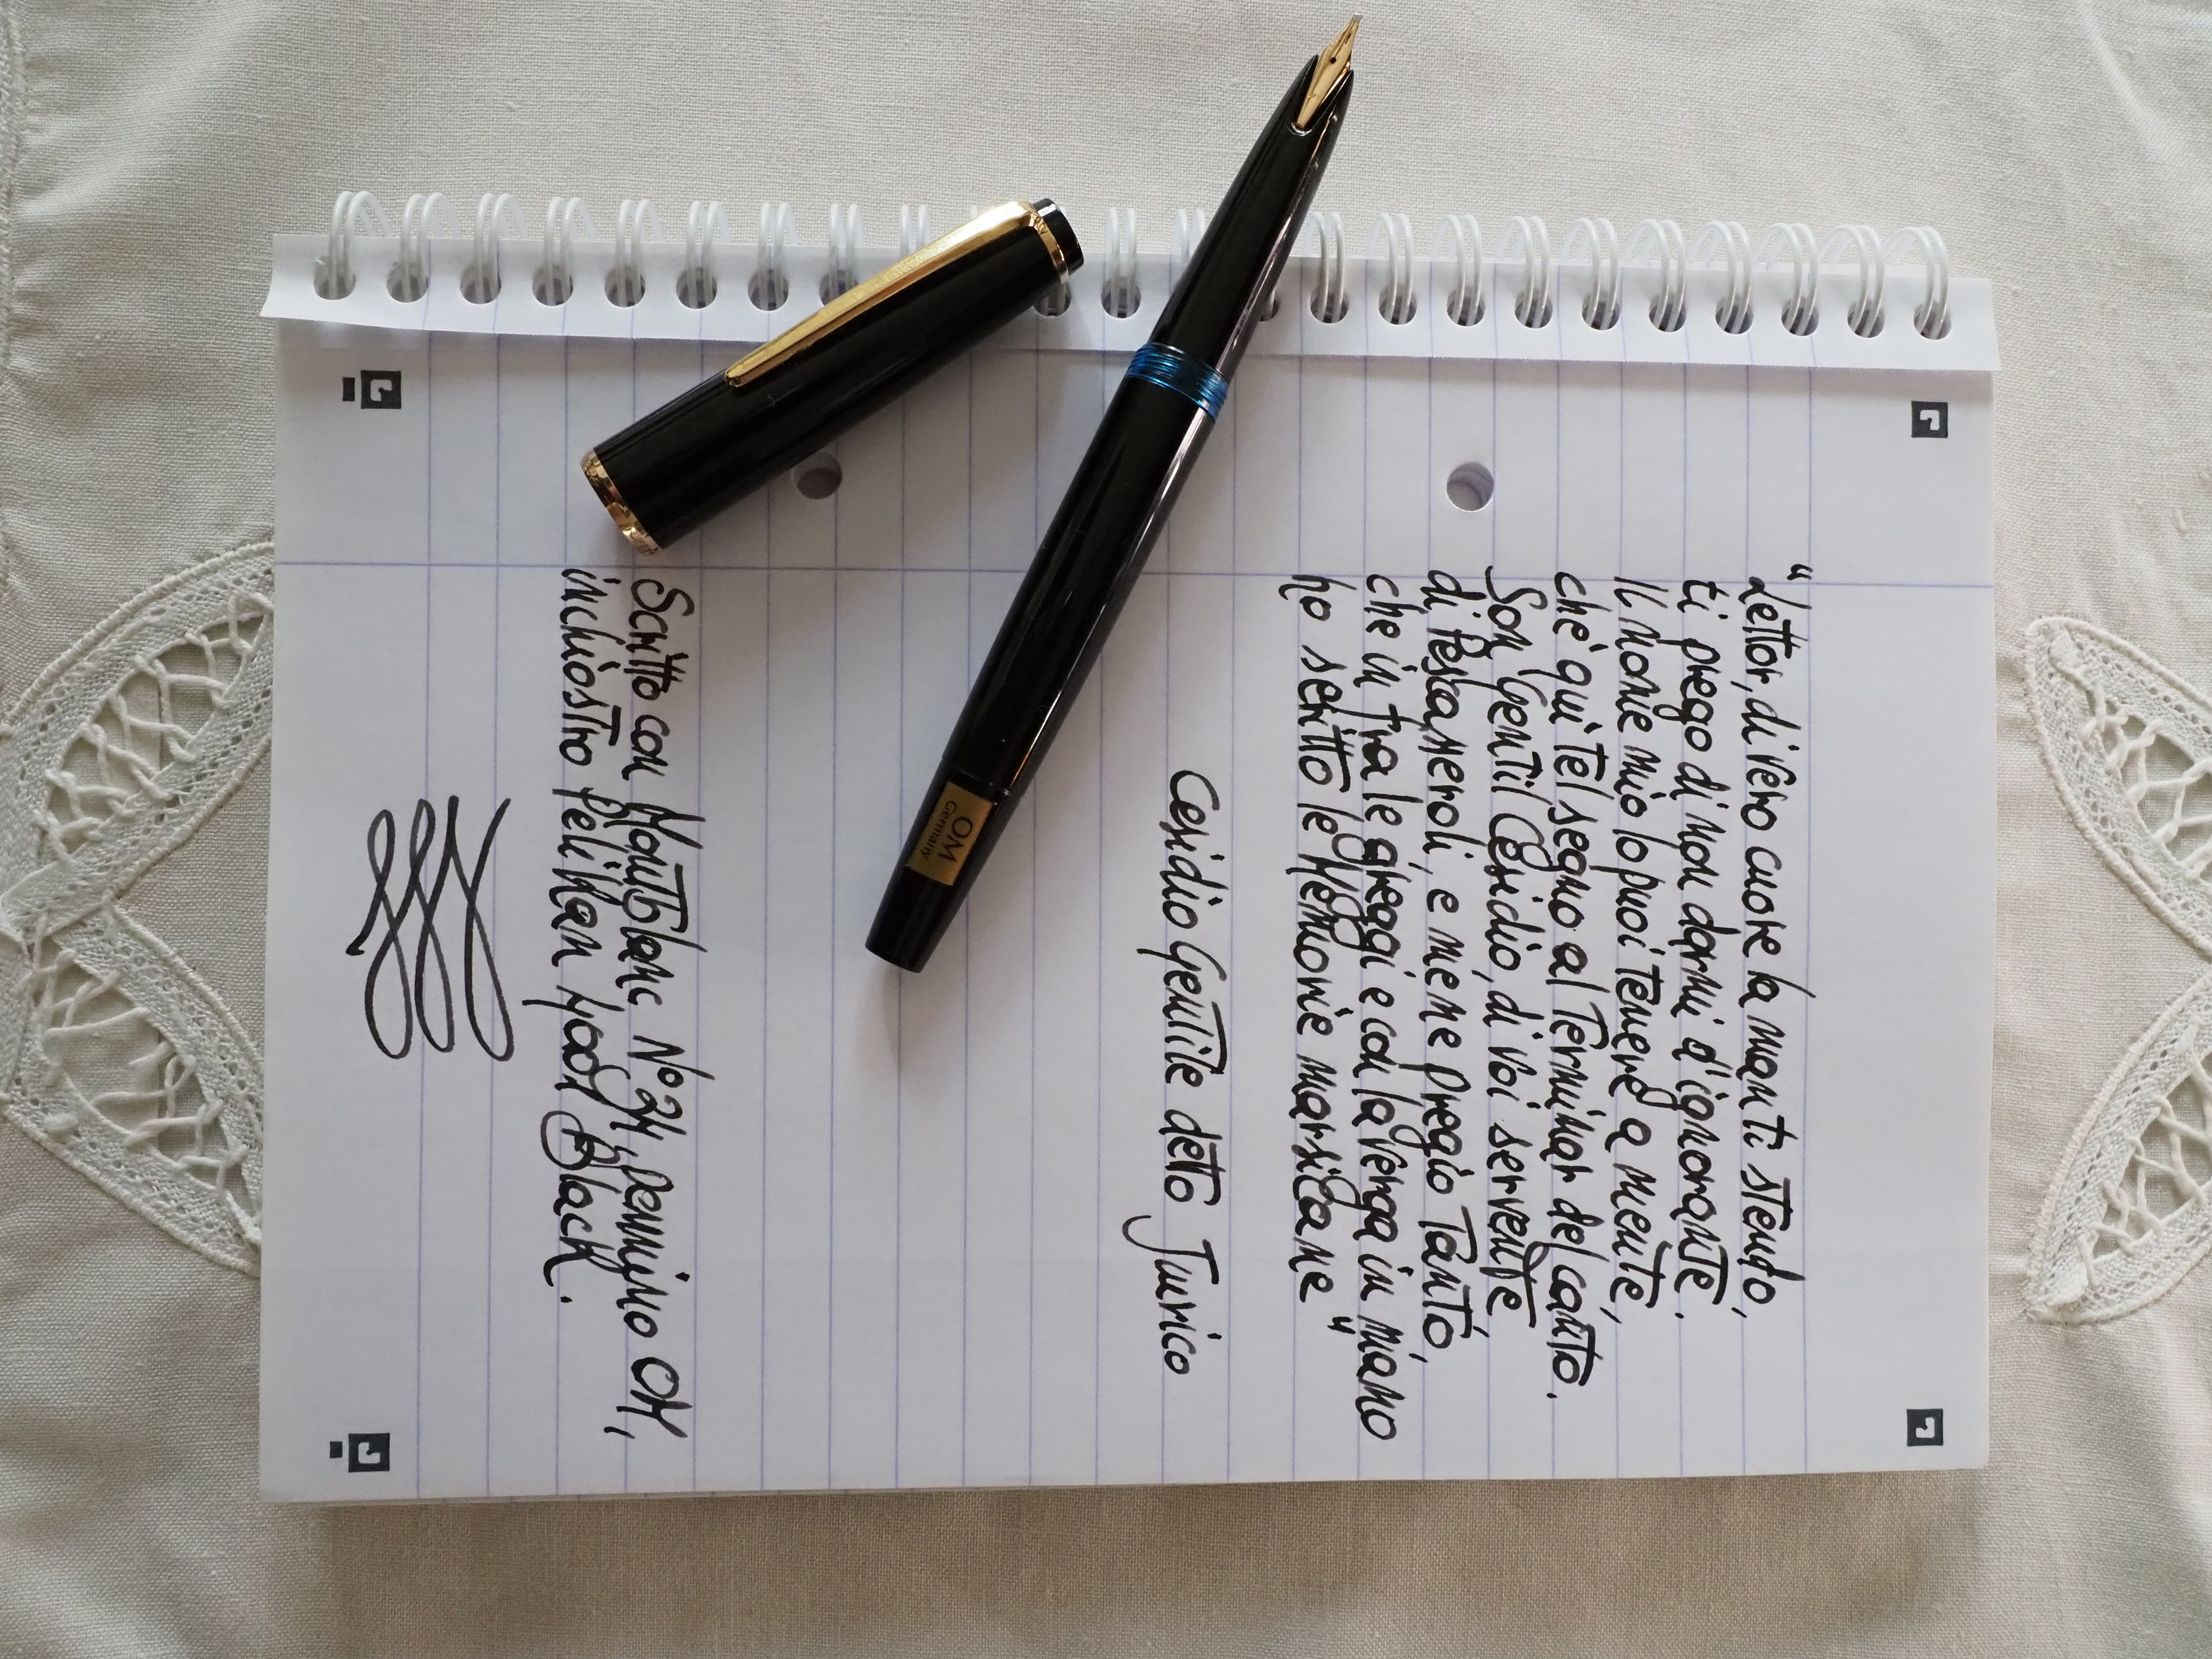 "Lettor, di vero cuore la man ti stendo,
ti prego di non darmi d'ignorante.
Il nome mio lo puoi tenere a mente,
chè qui tel segno al terminar del canto.
Son Gentil Cesidio, di voi servente
di Pescasseroli, e mene pregio tanto,
che in fra le greggi e con la verga in mano
ho scritto le memorie marsicane"
Cesidio Gentile detto Jurico
Scritto con Montblanc N° 24, pennino OM,
inchiostro Pelikan 4001 Black.
OM
Germany